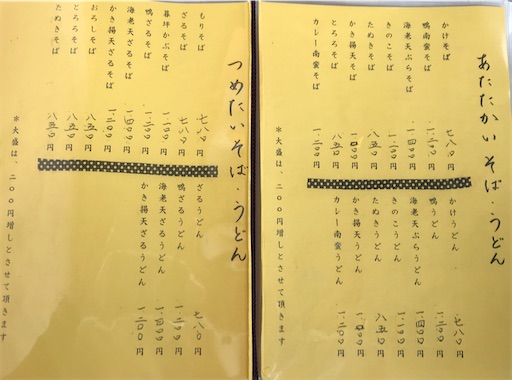 あたたかい そば・うどん
かけそば 七八〇円
鴨南蛮そば 一.二〇〇円
海老天ぷらそば 一.四〇〇円
きのこそば 一.一〇〇円
たぬきそば 八五〇円
かき揚天そば 円
とろろそば 八五〇円
カレー南蛮そば 一.二〇〇円
かけうどん 七八〇円
鴨うどん 一.二〇〇円
海老天ぷらうどん 一.四〇〇円
きのこうどん 一.一〇〇円
たぬきうどん 八五〇円
かき揚天うどん 円
カレー南蛮うどん 一.二〇〇円
＊大盛は、二〇〇円増しとさせて頂きます
つめたい そば・うどん
もりそば 七八〇円
ざるそば 七八〇円
暮坪かぶそば 一.二〇〇円
鴨ざるそば 一.二〇〇円
海老天ざるそば 一.四〇〇円
かき揚天ざるそば 一.二〇〇円
おろしそば 八五〇円
とろろそば 八五〇円
たぬきそば 八五〇円
ざるうどん 七八〇円
鴨ざるうどん 一.二〇〇円
海老天ざるうどん 一.四〇〇円
かき揚天ざるうどん 一.二〇〇円
＊大盛は、二〇〇円増しとさせて頂きます